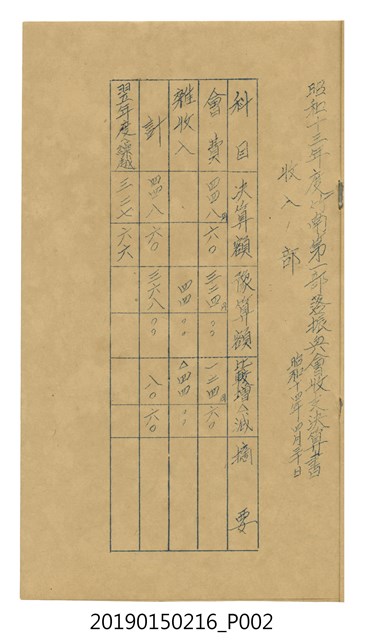 昭和十三年度江南第一部落振興會收支決算書
昭和十四年四月三十日
收入ノ部
科目 決算額 豫算額 比較増△減 摘要
會費 四四八円六〇 三二四円〇〇 一二四円六〇
雜收入 四四〇〇 △四四〇〇
計 四四八六〇 三六八〇〇 八〇六〇
翌年度繰越 三二七六六
20190150216_P002